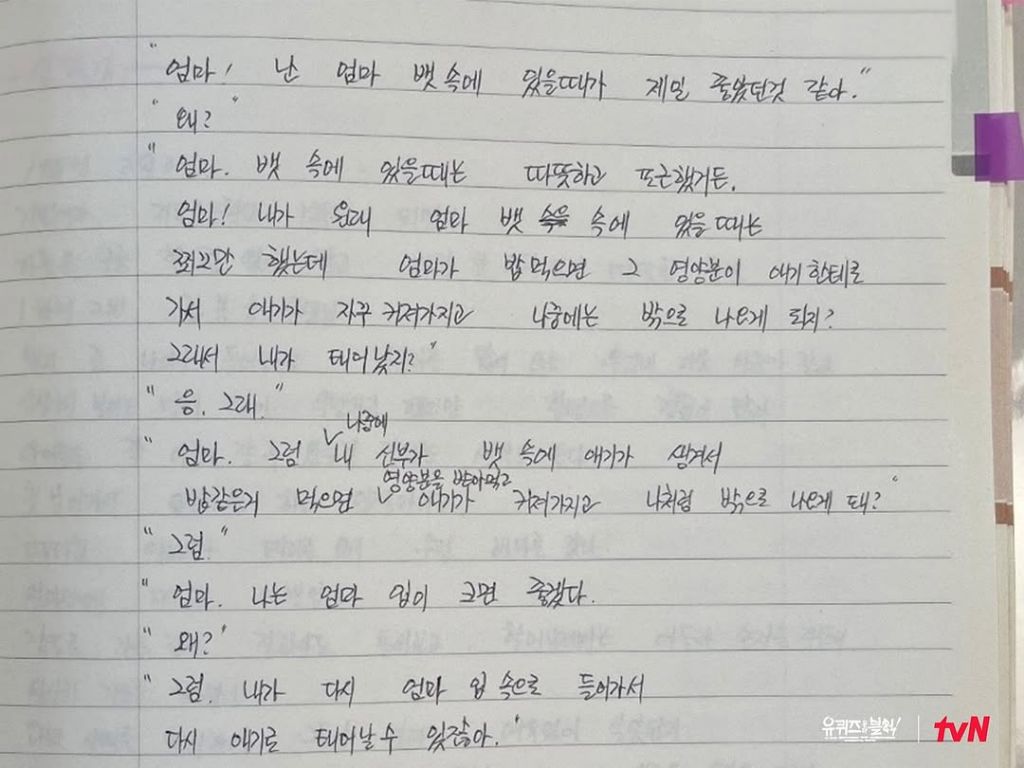 "엄마! 난 엄마 뱃속에 있을때가 제일 좋았던것 같아."
"왜?"
"엄마. 뱃 속에 있을때는 따뜻하고 포근했거든.
엄마! 내가 원래 엄마 뱃 속에 있을때는
쬐끄만 했는데 엄마가 밥먹으면 그 영양분이 애기한테로
가서 애기가 자꾸 커져가지고 나중에는 밖으로 나오게 되지?
그래서 내가 태어났지?"
"응. 그래."
"엄마. 그럼 나중에 내 신부가 뱃속에 애기가 생겨서
밥같은거 먹으면 영양분을 받아먹고 애기가 커져가지고 나처럼 밖으로 나오게 돼?"
"그럼"
"엄마. 나는 엄마 입이 크면 좋겠다.
"왜?"
"그럼. 내가 다시 엄마 입 속으로 들어가서
다시 애기로 태어날 수 있잖아."
유퀴즈온더블럭! tvN